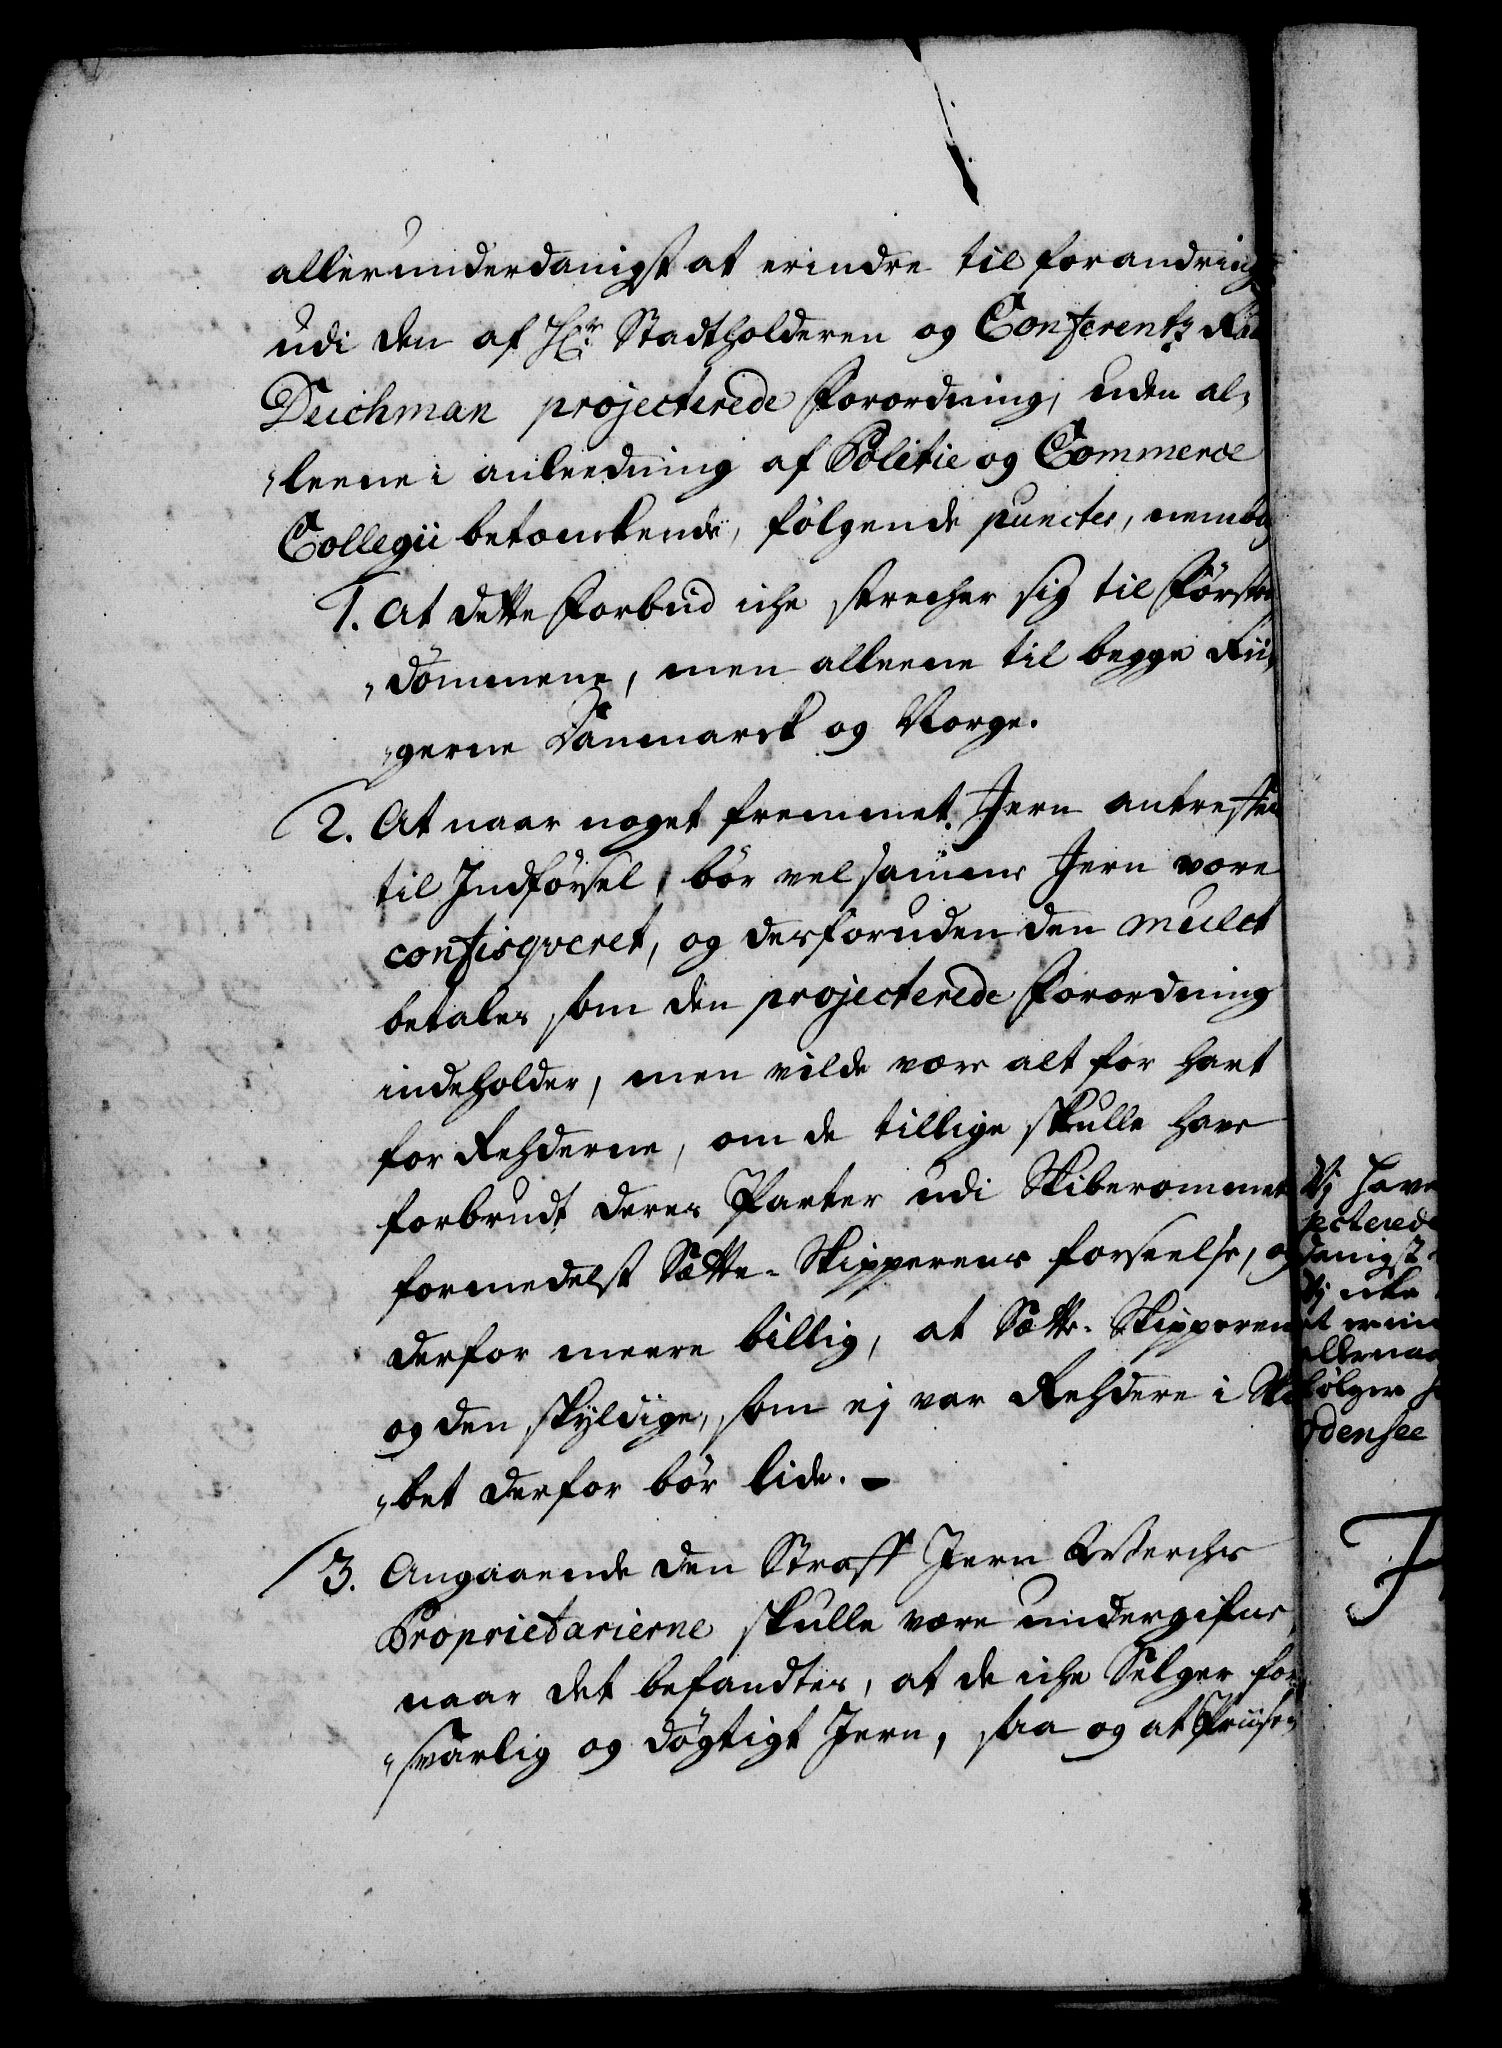 allerunderdanigst at erindre til forandring
udi den af Hr. Stadtholderen og Conferentz Raa
Deichman projecterede Forordning, uden al,
,leene i anleedning af Politie og Commerce
Collegii betænkende, følgende puncter, nembl
1. At dette Forbud iche strecher sig til Førsten
,dømmene, men alleene til begge Rii,
,gerne Danmarck og Norge.
2. At naar noget fremmet Jern antreffes
til Indførsel, bør vel samme Jern være
confisqveret, og desforuden den mulct
betales som den projecterede Forordning
indeholder, men vilde være alt for hart
for Rehderne, om de tillige skulle have
forbrudt deres Parter udi Skiberommet
formedelst Sætte-Skipperens forseelse, og
derfor meere billig, at Sætte-Skipperen
og den skyldige, som ej var Rehdere i Ski
,bet derfor bør lide. -
3. Angaaende den Straff Jern Werchs
Proprietarierne skulle være undergifne,
naar det befandtes, at de iche Selger for,
,svarlig og døgtigt Jern, saa og at Priisen
Vj have
jecterede
danigst
Vj icke
et erin
allernaa
følger
Odensee